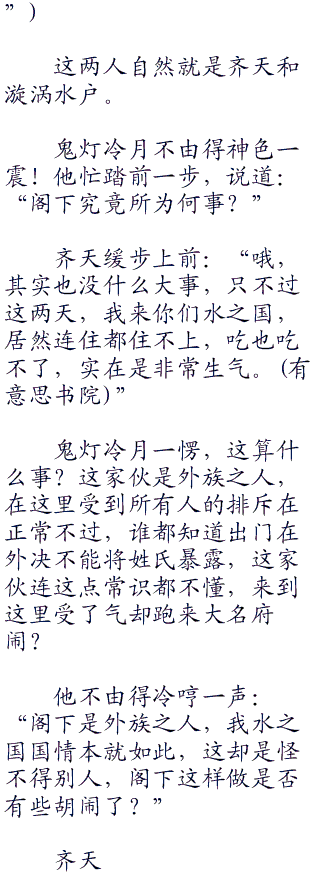 ”)
这两人自然就是齐天和
漩涡水户。
鬼灯冷月不由得神色一
震！他忙踏前一步，说道：
“阁下究竟所为何事？”
齐天缓步上前：“哦，
其实也没什么大事，只不过
这两天，我来你们水之国，
居然连住都住不上，吃也吃
不了，实在是非常生气。(有
意思书院)”
鬼灯冷月一愣，这算什
么事？这家伙是外族之人，
在这里受到所有人的排斥在
正常不过，谁都知道出门在
外决不能将姓氏暴露，这家
伙连这点常识都不懂，来到
这里受了气却跑来大名府
闹？
他不由得冷哼一声：
“阁下是外族之人，我水之
国国情本就如此，这却是怪
不得别人，阁下这样做是否
有些胡闹了？”
齐天